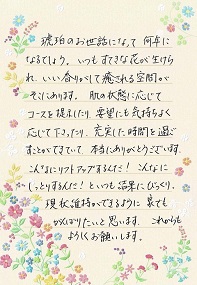 琥珀のお世話になって 何年に
なるでしょう。いつもすてきな花が生けら
れ、いい香りがして癒される空間が
そこにあります。肌の状態に応じて
コースを提示したり 要望にも気持ちよく
応じて下さったり、充実した時間を過ご
すことができていて、本当にありがとうございます。
こんなにリフトアップするんだ! こんなに
しっとりするんだ! といつも結果にびっくり。
現状維持ができるように 私でも
がんばりたいと思います。これからも
よろしくお願いします。